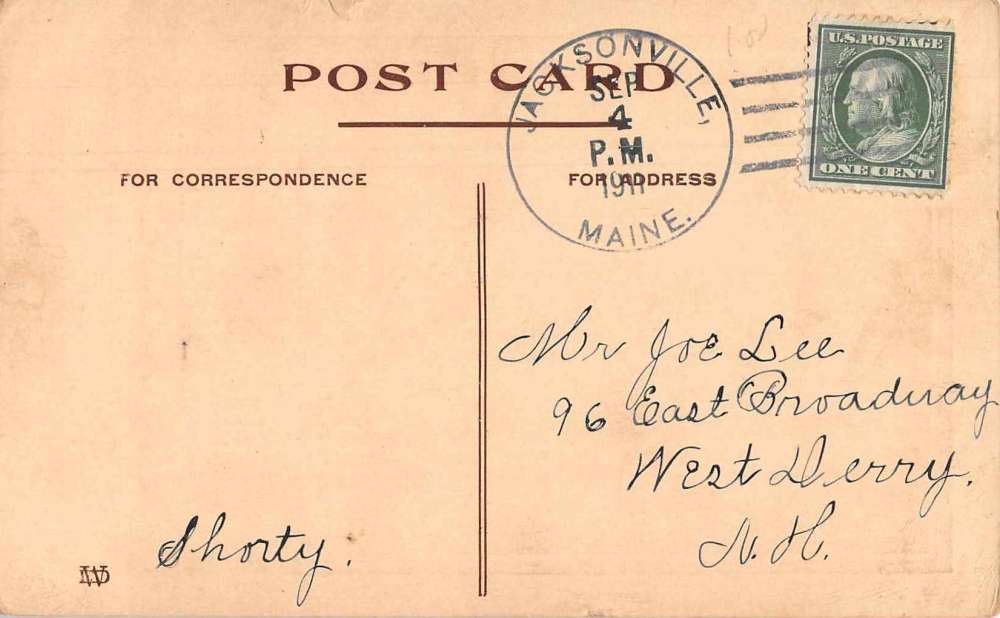 POST CARD
JACKSONVILLE,
SEP
4
P.M.
1911
MAINE.
U.S. POSTAGE
ONE CENT
FOR CORRESPONDENCE
FOR ADDRESS
Mr Joe Lee
96 East Broadway
West Derry.
N. H.
Shorty.